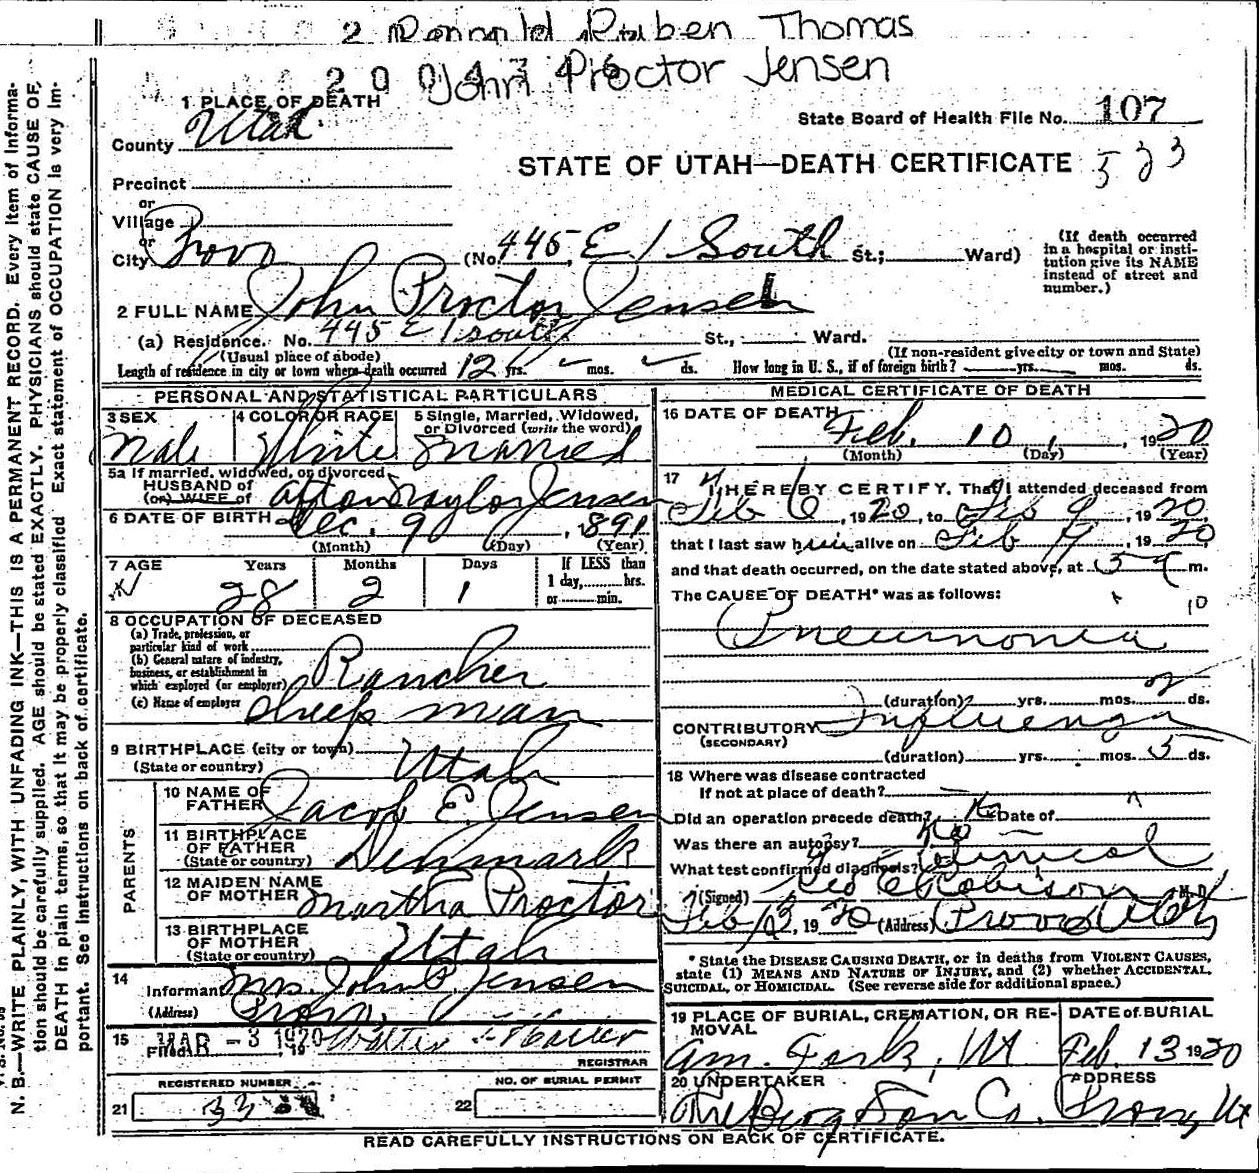 2 Ronald Ruben Thomas
John Proctor Jensen
1 PLACE OF DEATH
County Utah
State Board of Health File No. 107
STATE OF UTAH—DEATH CERTIFICATE 533
Precinct
or
Village
or
City Provo (No. 445 E 1 South St.; Ward)
(If death occurred in a hospital or institution give its NAME instead of street and number.)
2 FULL NAME John Proctor Jensen
(a) Residence. No. 445 E 1 South St., Ward.
(Usual place of abode) (If non-resident give city or town and State)
Length of residence in city or town where death occurred 12 yrs. mos. ds. How long in U. S., if of foreign birth? yrs. mos. ds.
PERSONAL AND STATISTICAL PARTICULARS
3 SEX 4 COLOR OR RACE 5 Single, Married, Widowed, or Divorced (write the word)
Male White Married
5a If married, widowed, or divorced
HUSBAND of
(or) WIFE of Afton Taylor Jensen
6 DATE OF BIRTH Dec. 9, 1891
(Month) (Day) (Year)
7 AGE Years Months Days If LESS than
1 day, hrs.
or min.
28 2 1
8 OCCUPATION OF DECEASED
(a) Trade, profession, or
particular kind of work
(b) General nature of industry,
business, or establishment in
which employed (or employer) Rancher
(c) Name of employer Sheep man
9 BIRTHPLACE (city or town)
(State or country) Utah
PARENTS
10 NAME OF FATHER Jacob E. Jensen
11 BIRTHPLACE OF FATHER
(State or country) Denmark
12 MAIDEN NAME OF MOTHER Martha Proctor
13 BIRTHPLACE OF MOTHER
(State or country) Utah
14 Informant Mrs. John P. Jensen
(Address) Provo,
15 Filed MAR - 3 1920, 19 Walter
REGISTRAR
REGISTERED NUMBER NO. OF BURIAL PERMIT
21 33 22
MEDICAL CERTIFICATE OF DEATH
16 DATE OF DEATH
Feb. 10, 1920
(Month) (Day) (Year)
17 I HEREBY CERTIFY, That I attended deceased from
Feb 6, 1920, to Feb 9, 1920
that I last saw him alive on Feb 9, 1920
and that death occurred, on the date stated above, at 5 m.
The CAUSE OF DEATH* was as follows:
10
Pneumonia
(duration) yrs. mos. 2 ds.
CONTRIBUTORY Influenza
(SECONDARY)
(duration) yrs. mos. 5 ds.
18 Where was disease contracted
If not at place of death?
Did an operation precede death? No Date of
Was there an autopsy? No
What test confirmed diagnosis? Clinical
(Signed) Geo E Robison M. D.
Feb 13, 1920 (Address) Provo Utah
* State the DISEASE CAUSING DEATH, or in deaths from VIOLENT CAUSES,
state (1) MEANS AND NATURE OF INJURY, and (2) whether ACCIDENTAL,
SUICIDAL, or HOMICIDAL. (See reverse side for additional space.)
19 PLACE OF BURIAL, CREMATION, OR REMOVAL DATE of BURIAL
Am. Fork, Ut Feb. 13 1920
20 UNDERTAKER ADDRESS
The Berg & Son Co. Provo, Ut
READ CAREFULLY INSTRUCTIONS ON BACK OF CERTIFICATE.
N. B.—WRITE PLAINLY, WITH UNFADING INK—THIS IS A PERMANENT RECORD. Every item of information should be carefully supplied. AGE should be stated EXACTLY. PHYSICIANS should state CAUSE OF DEATH in plain terms, so that it may be properly classified. Exact statement of OCCUPATION is very important. See instructions on back of certificate.